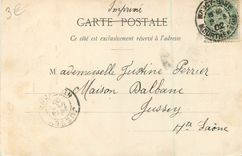 3€
Imprimé
CARTE POSTALE
Ce côté est exclusivement réservé à l'adresse
Mademoiselle Justine Perrier
Maison Dalbane
Jussey
Hte Saône